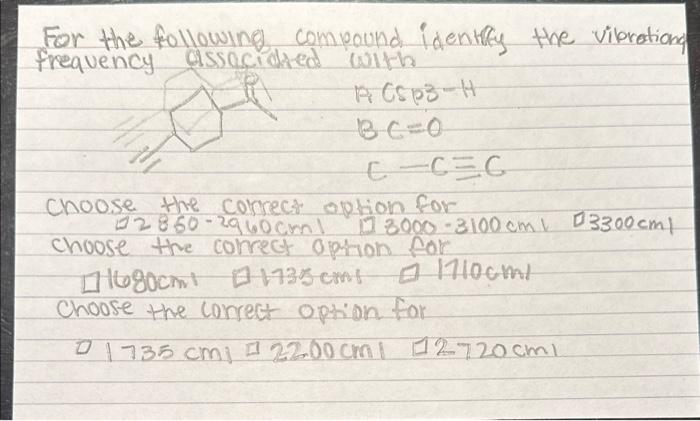 For the following compound identify the vibrationa
frequency associated with
O
A Csp3-H
B C=O
C -C≡C
choose the correct option for
□2860-2960cm1 □3000-3100cm1 □3300cm1
choose the correct option for
□1680cm1 □1735cm1 □1710cm1
Choose the correct option for
□1735cm1 □2200cm1 □2720cm1